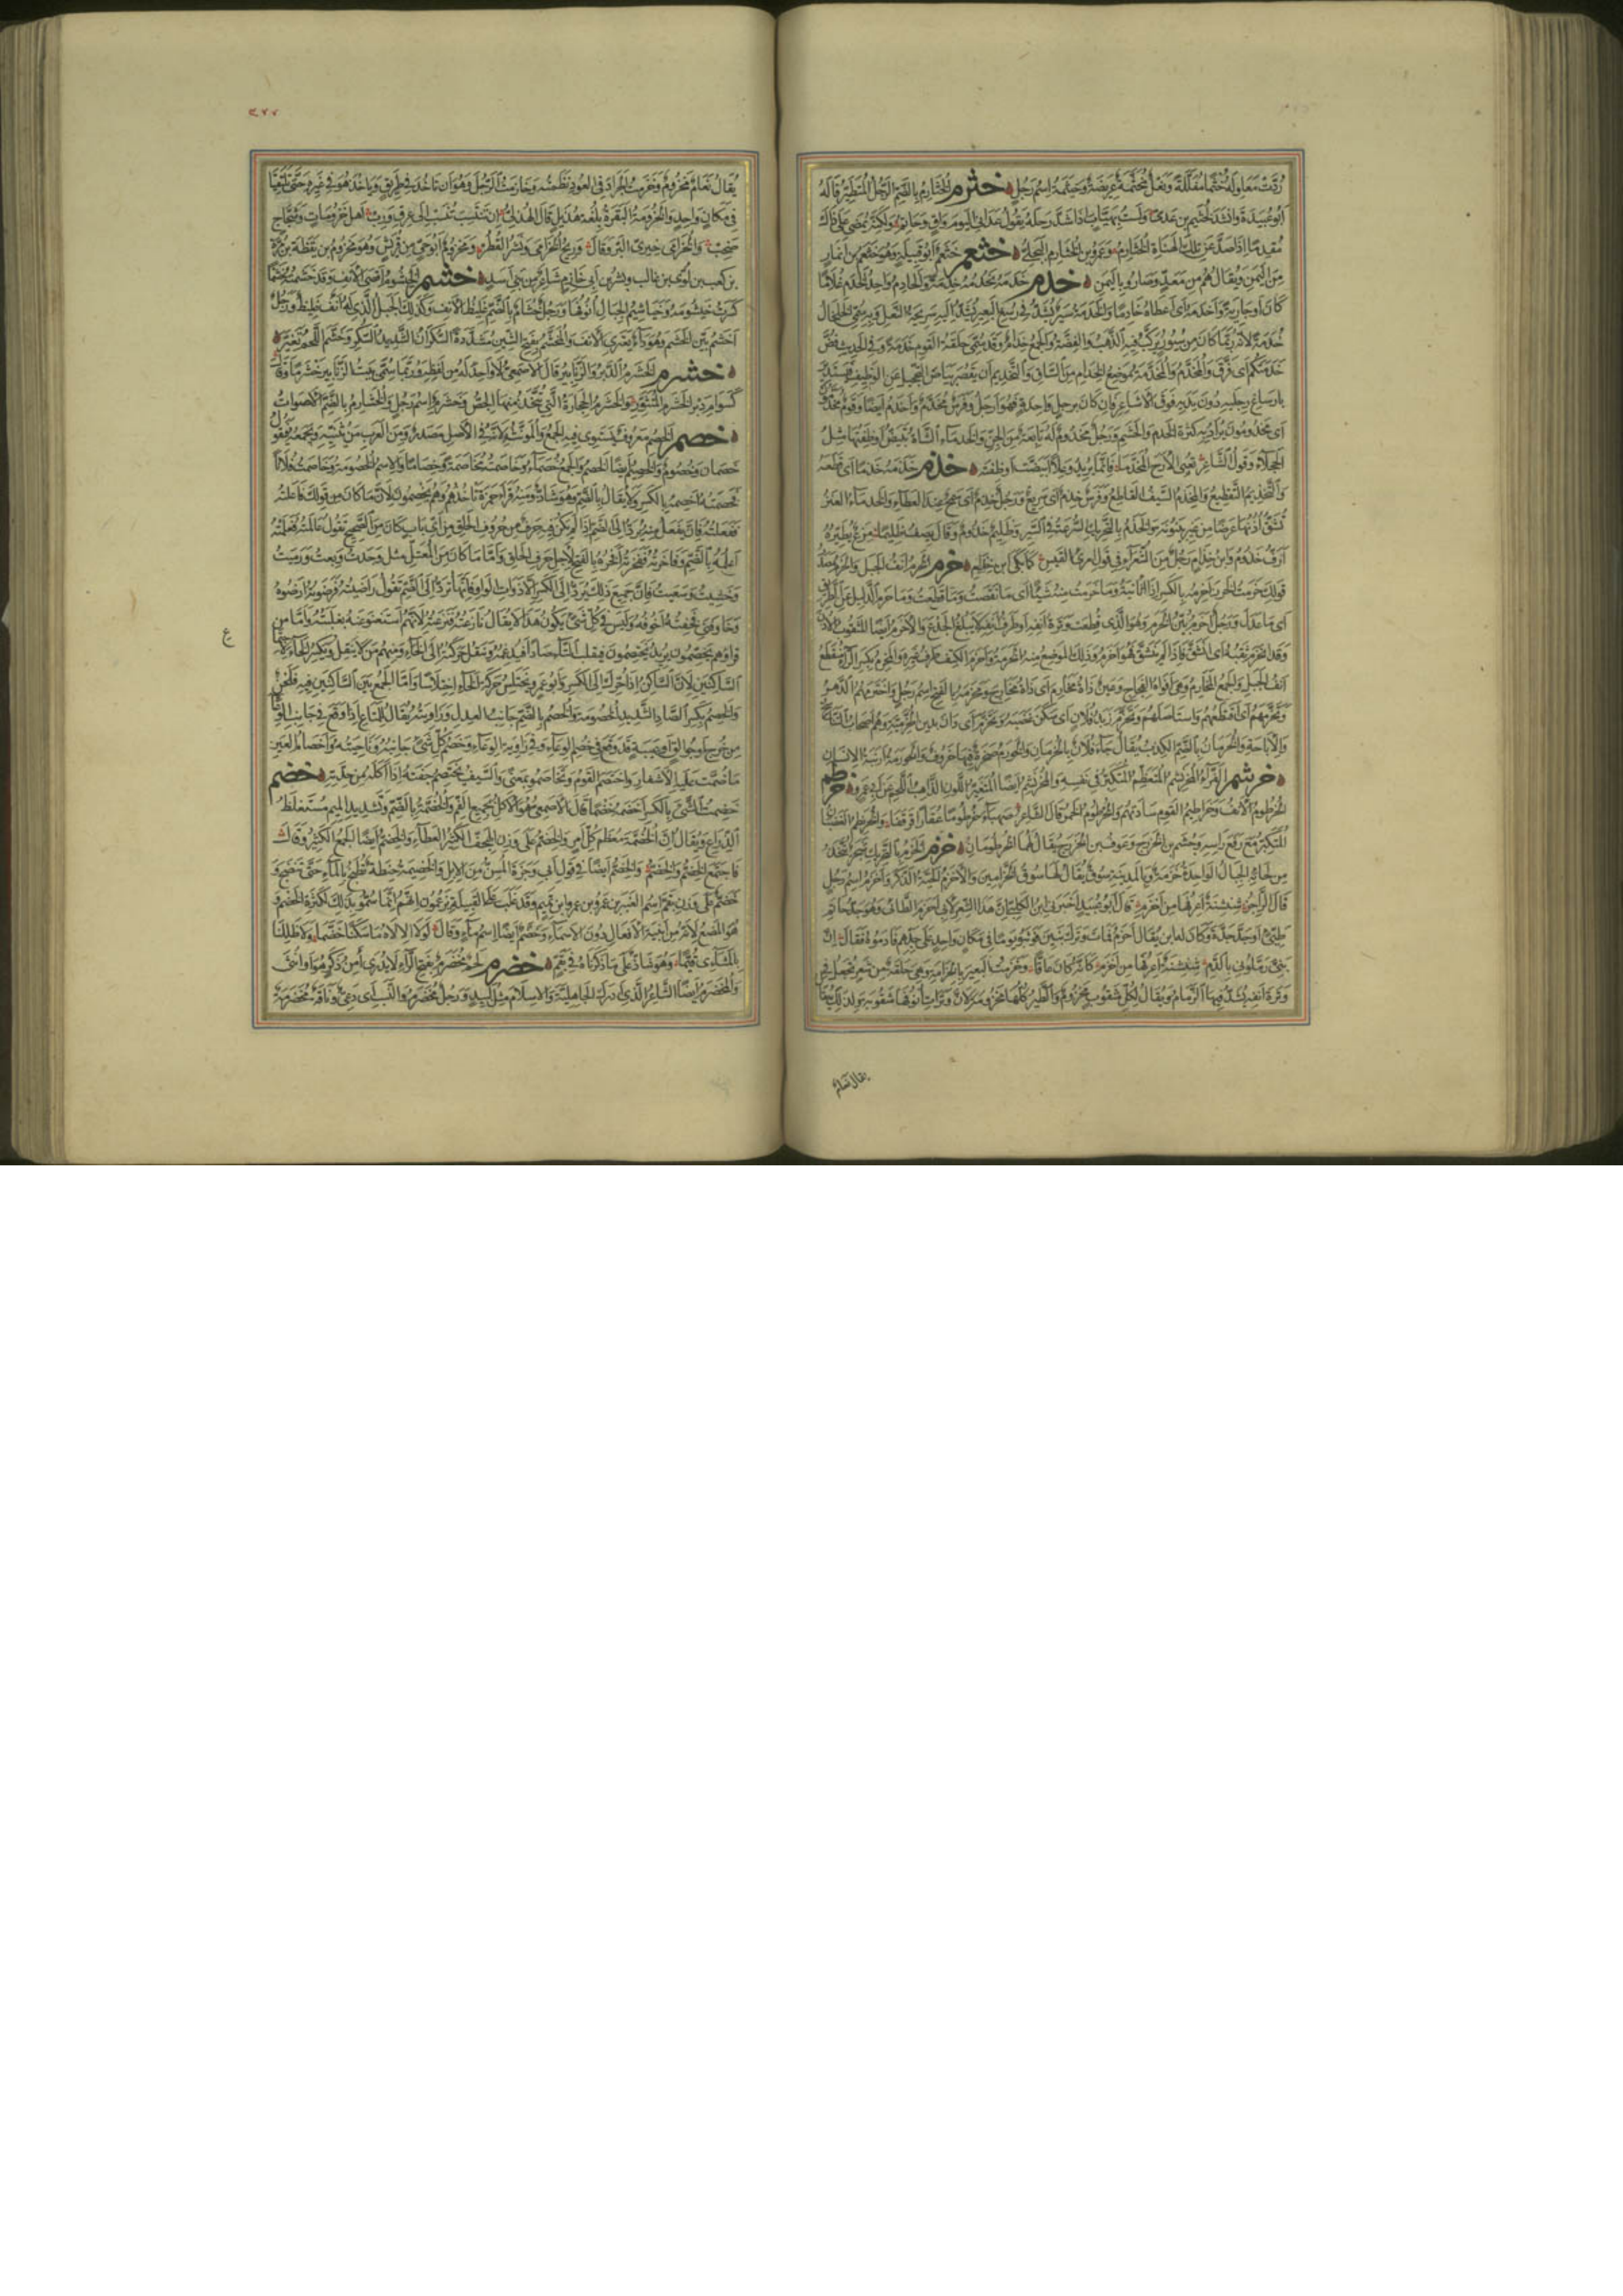 رققت معاوله خثما مفللة ونعل مخثمة عريضة وخيثمة اسم رجل خثرم الخثارم بالضم الرجل المتطير قاله
ابو عبيدة وانشد لخثيم بن عدى ولست بهياب اذا شد رحله يقول عدانى اليوم واق وحاتم ولكنه يمضى على ذاك
مقدما اذا صد عن تلك الهناة الخثارم وعمرو بن الخثارم البجلى خثعم خثعم ابو قبيلة وهو خثعم بن انمار
من اليمن ويقال هم من معد وصاروا باليمن خدم خدمه يخدمه خدمة والخادم واحد الخدم غلاما
كان او جارية واخدمه اى اعطاه خادما والخدمة سير يشد فى رسغ البعير تشد اليه سريحة النعل وبه سمى الخلخال
خدمة لانه ربما كان من سيور يركب فيه الذهب والفضة والجمع خدام وقد يسمى حلقة القوم خدمة وفى الحديث فض
خدمتكم اى فرق والمخدم والمخدمة موضع الخدام من الساق والتخديم ان يقصر بياض التحجيل عن الوظيف فيستدير
بارساغ رجليه دون يديه فوق الاشاعر فان كان برجل واحدة فهو ارجل وفرس مخدم واخدم ايضا وقوم مخدمون
اى يخدمون يراد به كثرة الخدم والحشم ورجل مخدوم له تابعة من الجن والخدماء الشاة تبيض اوظفتها مثل
الحجلاء وقول الشاعر تعيى الارح المخدما فانما يريد وعلا ابيضت اوظفته خذم خذمه خذما اى قطعه
والتخذيم التقطيع والمخذم السيف القاطع وفرس خذم اى سريع ورجل خذم اى سمح عند العطاء والخذماء العنز
تشق اذنها عرضا من غير بينونة والخذم بالتحريك السرعة فى السير وظليم خذوم وقال يصف ظليما مزع يطيره
ازف خذوم وابن خذام رجل من الشعراء فى قول امرئ القيس كما بكى ابن خذام خرم الخرم انف الجبل والخرم مصدر
قولك خرمت الخرز اخرمه بالكسر اذا اثأيته وما خرمت منه شيئا اى ما نقصت وما قطعت وما خرم الدليل عن الطريق
اى ما عدل ورجل اخرم بين الخرم وهو الذى قطعت وترة انفه او طرف انفه لا يبلغ الجدع والاخرم ايضا المثقوب الاذن
وقد انخرم ثقبه اى انشق فاذا لم ينشق فهو اخرم وذلك الموضع منه الخرمة واخرم الكتف طرف عيره والمخرم بكسر الراء منقطع
انف الجبل والجمع المخارم وهى افواه الفجاج ويمين ذات مخارم اى ذات مخارج ومخرمة بالفتح اسم رجل واخترمهم الدهر
وتخرمهم اى اقتطعهم واستاصلهم وتخرم زبد فلان اى سكن غضبه وتخرم اى دان بدين الخرمية وهم اصحاب التناسخ
والاباحة والخرمان بالضم الكذب يقال جاء فلان بالخرمان والخورم صخرة فيها خروق والخورمة ارنبة الانسان
خرشم الفراء المخرنشم المتعظم المتكبر فى نفسه والمخرنشم ايضا المتغير اللون الذاهب اللحم عن ابى عمرو خرطم
الخرطوم الانف وخراطيم القوم ساداتهم والخرطوم الخمر قال الشاعر صهباء خرطوما عقارا قرقفا والمخرنطم الغضبان
المتكبر مع رفع راسه وجشم بن الخزرج وعوف بن الخزرج يقال لهما الخرطومان خزم الخزم بالتحريك شجر يتخذ
من لحائه الحبال الواحدة خزمة وبالمدينة سوق يقال لها سوق الخزامين والاخزم الحية الذكر واخزم اسم رجل
قال الراجز شنشنة اعرفها من اخزم قال ابو عبيد اخبرنى ابن الكلبى ان هذا الشعر لابى اخزم الطائى وهو جد حاتم
طيئ او جد جده وكان له ابن يقال له اخزم فمات وترك بنين فوثبوا يوما فى مكان واحد على جدهم فادموه فقال ان
بنى رملونى بالدم شنشنة اعرفها من اخزم كانه كان عاقا وخزمت البعير بالخزامة وهى حلقة من شعر تجعل فى
وترة انفه يشد فيها الزمام ويقال لكل مثقوب مخزوم والطير كلها مخزومة لان وترات انوفها مثقوبة ولذلك
يقال نعام
٣٧٧
يقال نعام مخزوم وخزمت الجراد فى العود نظمته وخازمت الرجل وهو ان تاخذ فى طريق وياخذ هو فى غيره حتى تلتقيا
فى مكان واحد والخزومة البقرة بلغة هذيل قال الهذلى ان تنتسب تنسب الى عرق ورب اهل خزومات وشحاج
صخب والخزامى خيرى البر وقال وريح الخزامى ونشر القطر ومخزوم ابو حى من قريش وهو مخزوم بن يقظة بن مرة
بن كعب بن لؤى بن غالب وبشر بن ابى خازم شاعر من بنى اسد خشم الخيشوم اقصى الانف وقد خشمته خشما
كسرت خيشومه وخياشيم الجبال انوفها ورجل خشام بالضم غليظ الانف وكذلك الجبل الذى له انف غليظ ورجل
اخشم بين الخشم وهو داء يعترى الانف والمخشم بفتح الشين مشددة السكران الشديد السكر وخشم اللحم تغير
خشرم الخشرم الدبر والزنابير قال الاصمعى لا واحد له من لفظه وربما سمى بيت الزنابير خشرما وقال
كسوام دبر الخشرم المتثور والخشرم الحجارة التى يتخذ منها الجص وخشرم اسم رجل والخشارم بالضم الاصوات
خصم الخصم معروف يستوى فيه الجمع والمونث لانه فى الاصل مصدر ومن العرب من يثنيه ويجمعه فيقول
خصمان وخصوم والخصيم ايضا الخصم والجمع خصماء وخاصمت مخاصمة وخصاما والاسم الخصومة وخاصمت فلانا
فخصمته اخصمه بالكسر ولا يقال بالضم وهو شاذ ومنه قرا حمزة تاخذهم وهم يخصمون لان ما كان من قولك فاعلته
ففعلته فان يفعل منه يرد الى الضم اذا لم يكن فيه حرف من حروف الحلق من اى باب كان من الصحيح تقول عالمته فعلمته
اعلمه بالضم وفاخرته ففخرته افخره بالفتح لاجل حرف الحلق واما ما كان من المعتل مثل وجدت وبعت ورميت
وخشيت وسعيت فان جميع ذلك يرد الى الكسر الا ذوات الواو فانها ترد الى الضم تقول راضيته فرضوته ارضوه
وخاوفنى فخفته اخوفه وليس فى كل شىء يكون هذا لا يقال نازعته فنزعته لانهم استغنوا عنه بغلبته واما من
قرا وهم يخصمون يريد يختصمون فيقلب التاء صادا فيدغمه وينقل حركته الى الخاء ومنهم من لا ينقل ويكسر الخاء لاجتماع
الساكنين لان الساكن اذا حرك حرك الى الكسر وابو عمرو يختلس حركة الخاء اختلاسا واما الجمع بين الساكنين فيه فلحن
والخصم بكسر الصاد الشديد الخصومة والخصم بالضم جانب العدل وزاويته يقال للمتاع اذا وقع فى جانب الوعاء
من خرج او جوالق او عيبة قد وقع فى خصم الوعاء وفى زاوية الوعاء وخصم كل شىء جانبه وناحيته واخصام العين
ما ضمت عليه الاشفار واختصم القوم وتخاصموا بمعنى والسيف يختصم جفنه اذا اكله من حدته خضم
خضمت الشىء بالكسر اخضمه خضما قال الاصمعى هو الاكل بجميع الفم والخضمة بالضم وتشديد الميم مستغلظ
الذراع ويقال ان الخضمة معظم كل امر والخضم على وزن الهجف الكثير العطاء والخضم ايضا الجمع الكثير وقال
فاجتمع الخضم والخضم والخضم ايضا فى قول ابى وجزة المسن من الابل والخضيمة حنطة تطبخ بالماء حتى تنضج و
خضم على وزن بقم اسم العنبر بن عمرو بن تميم وقد غلب على القبيلة يزعمون انهم انما سموا بذلك لكثرة الخضم و
هو المضغ لانه من ابنية الافعال دون الاسماء وخضم ايضا اسم ماء وقال لولا الاله ما سكنا خضما ولا ظللنا
بالمشاءى قيما وهو شاذ على ما ذكرناه فى بقم خضرم لحم مخضرم بفتح الراء لا يدرى امن ذكر هو او انثى
والمخضرم ايضا الشاعر الذى ادرك الجاهلية والاسلام مثل لبيد ورجل مخضرم النسب اى دعى وناقة مخضرمة
ع